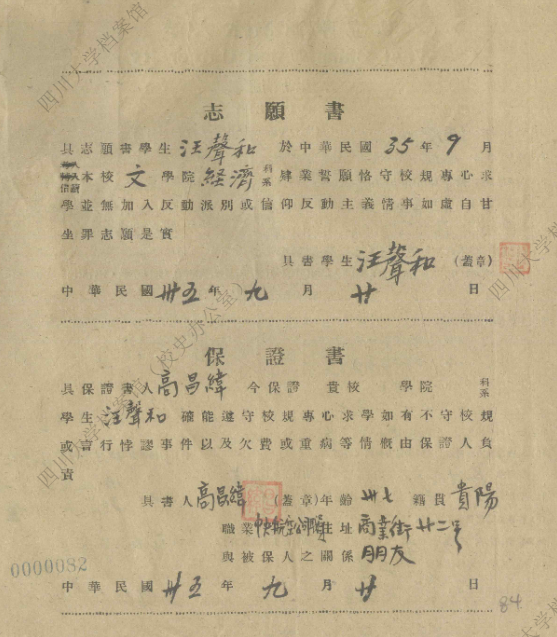 志願書
具志願書學生汪聲和於中華民國35年9月
本校文學院經濟科系肄業誓願恪守校規專心求
學並無加入反動派別或信仰反動主義情事如虛自甘
坐罪志願是實
具書學生汪聲和(蓋章)
中華民國卅五年九月廿日
保證書
具保證書人高昌緯今保證貴校學院科系
學生汪聲和確能遵守校規專心求學如有不守校規
或言行悖謬事件以及欠費或重病等情概由保證人負
責
具書人高昌緯(蓋章)年齡卅七籍貫貴陽
職業住址商業街廿二号
與被保人之關係朋友
0000082
中華民國卅五年九月廿日
84
四川大学档案馆
四川大学档案馆(校史办公室)
四川大学档